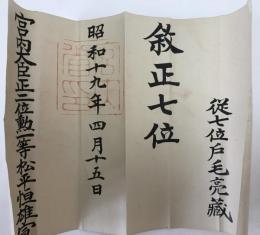 從七位戶毛亮藏
敘正七位
昭和十九年四月十五日
宮內大臣正二位勲一等松平恒雄宣